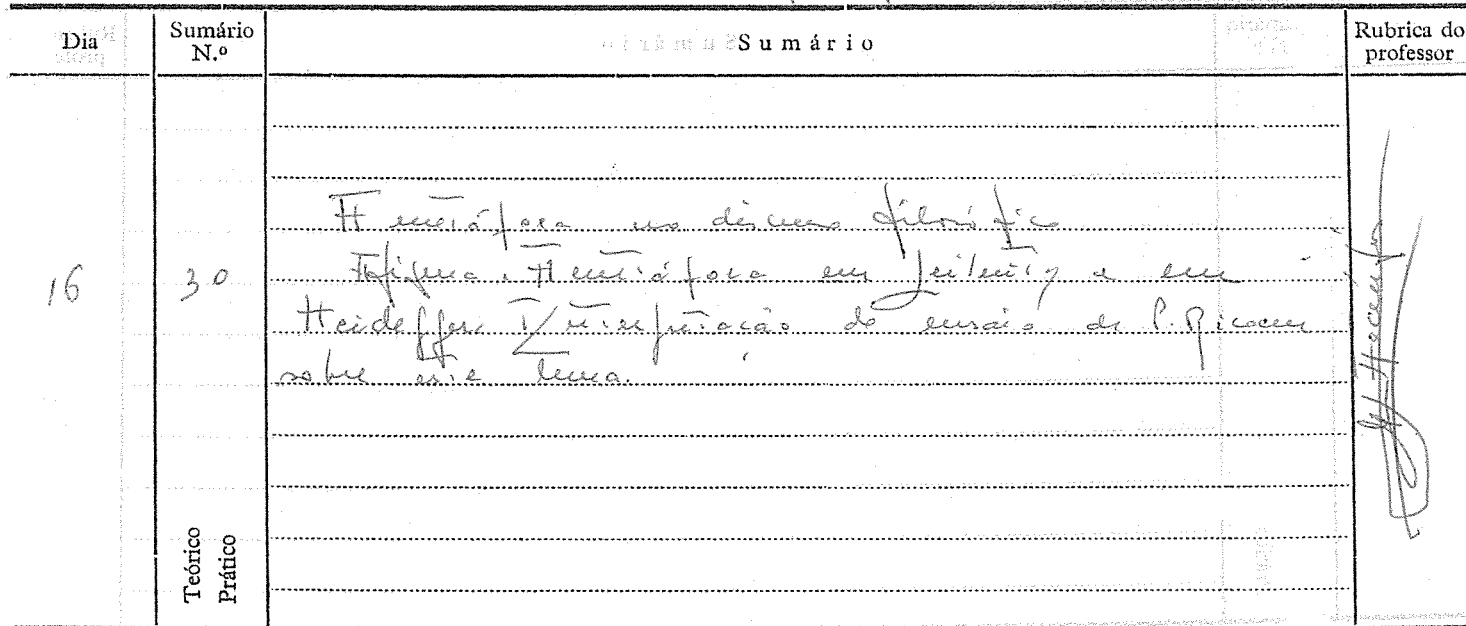 Dia
Sumário N.º
Sumário
Rubrica do professor
A metáfora no discurso filosófico
A metáfora em Leibniz e em
16
3º
Heidegger. Interpretação do ensaio de P. Ricoeur
sobre este tema.
Teórico
Prático